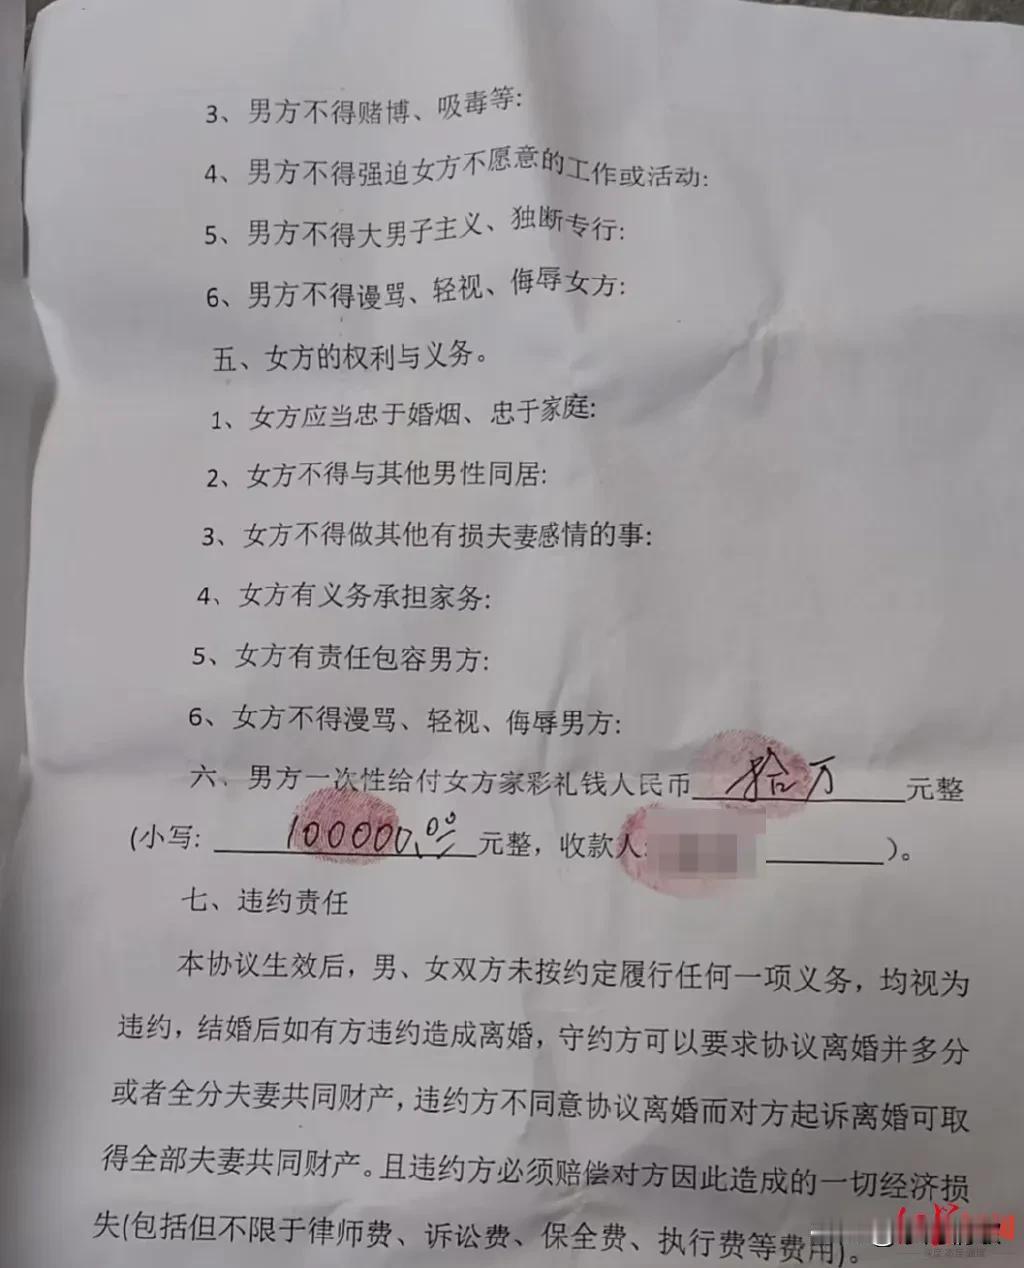 3、男方不得赌博、吸毒等:
4、男方不得强迫女方不愿意的工作或活动:
5、男方不得大男子主义、独断专行:
6、男方不得谩骂、轻视、侮辱女方:
五、女方的权利与义务。
1、女方应当忠于婚烟、忠于家庭:
2、女方不得与其他男性同居:
3、女方不得做其他有损夫妻感情的事:
4、女方有义务承担家务:
5、女方有责任包容男方:
6、女方不得漫骂、轻视、侮辱男方:
六、男方一次性给付女方家彩礼钱人民币 拾万 元整
(小写: 100000.00 元整，收款人: )。
七、违约责任
本协议生效后，男、女双方未按约定履行任何一项义务，均视为
违约，结婚后如有方违约造成离婚，守约方可以要求协议离婚并多分
或者全分夫妻共同财产，违约方不同意协议离婚而对方起诉离婚可取
得全部夫妻共同财产。且违约方必须赔偿对方因此造成的一切经济损
失(包括但不限于律师费、诉讼费、保全费、执行费等费用)。